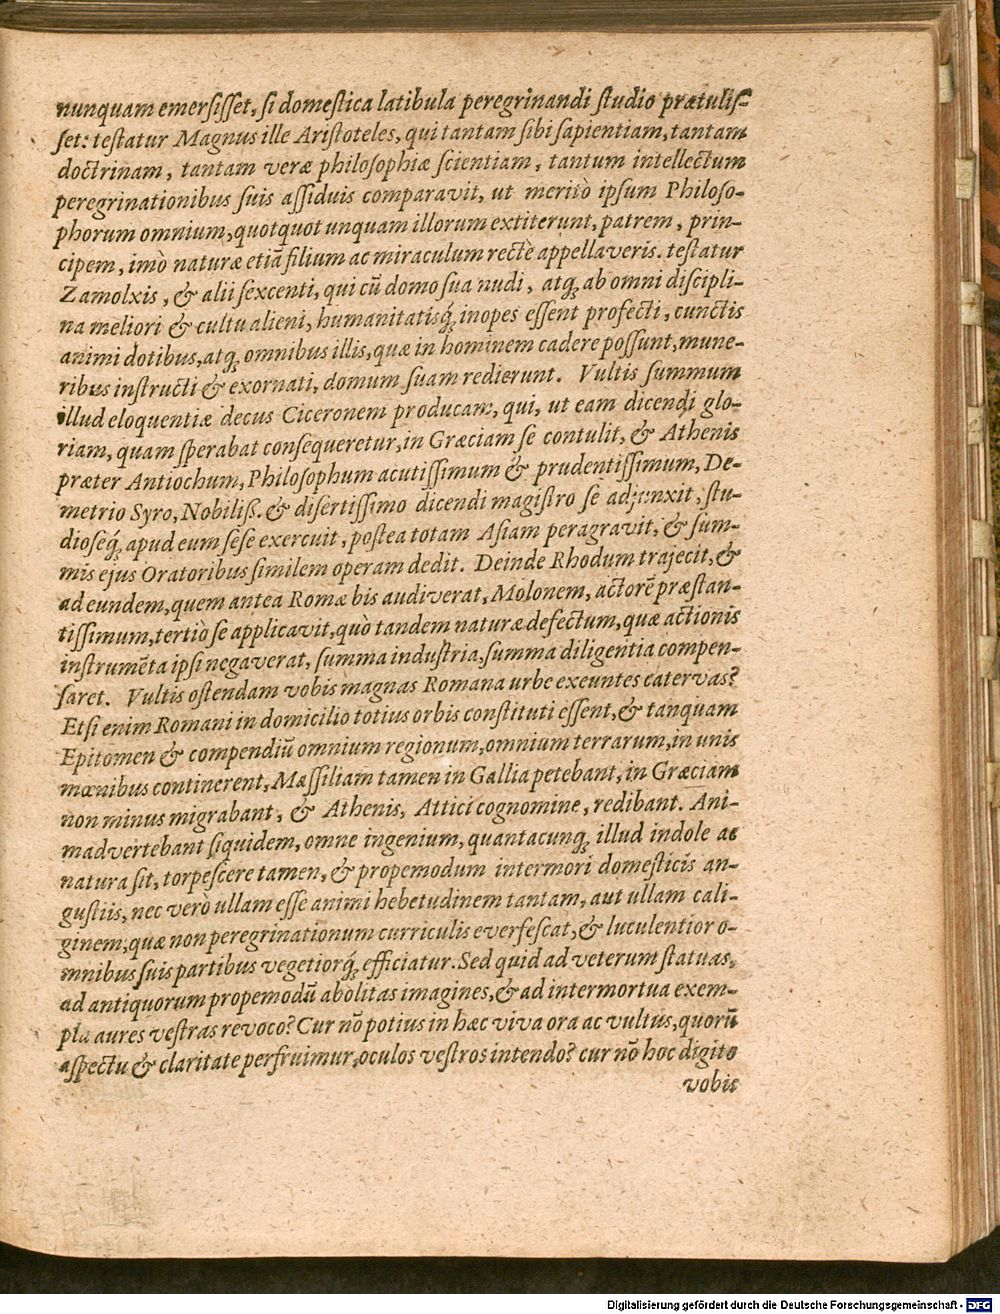 nunquam emersisset, si domestica latibula peregrinandi studio prætulis-
set: testatur Magnus ille Aristoteles, qui tantam sibi sapientiam, tantam
doctrinam, tantam veræ philosophiæ scientiam, tantum intellectum
peregrinationibus suis assiduis comparavit, ut meritò ipsum Philoso-
phorum omnium, quotquot unquam illorum extiterunt, patrem, prin-
cipem, imò naturæ etiã filium ac miraculum rectè appellaveris. testatur
Zamolxis, & alii sexcenti, qui cũ domo sua nudi, atq; ab omni discipli-
na meliori & cultu alieni, humanitatisq́; inopes essent profecti, cunctis
animi dotibus, atq; omnibus illis, quæ in hominem cadere possunt, mune-
ribus instructi & exornati, domum suam redierunt. Vultis summum
illud eloquentiæ decus Ciceronem producam, qui, ut eam dicendi glo-
riam, quam sperabat consequeretur, in Græciam se contulit, & Athenis
præter Antiochum, Philosophum acutissimum & prudentissimum, De-
metrio Syro, Nobiliß. & disertissimo dicendi magistro se adjunxit, stu-
dioseq́; apud eum sese exercuit, postea totam Asiam peragravit, & sum-
mis ejus Oratoribus similem operam dedit. Deinde Rhodum trajecit, &
ad eundem, quem antea Romæ bis audiverat, Molonem, actorẽ præstan-
tissimum, tertiò se applicavit, quò tandem naturæ defectum, quæ actionis
instrumẽta ipsi negaverat, summa industria, summa diligentia compen-
saret. Vultis ostendam vobis magnas Romana urbe exeuntes catervas?
Etsi enim Romani in domicilio totius orbis constituti essent, & tanquam
Epitomen & compendiũ omnium regionum, omnium terrarum, in unis
mœnibus continerent, Massiliam tamen in Gallia petebant, in Græciam
non minus migrabant, & Athenis, Attici cognomine, redibant. Ani-
madvertebant siquidem, omne ingenium, quantacunq; illud indole ac
natura sit, torpescere tamen, & propemodum intermori domesticis an-
gustiis, nec verò ullam esse animi hebetudinem tantam, aut ullam cali-
ginem, quæ non peregrinationum curriculis everfescat, & luculentior o-
mnibus suis partibus vegetiorq́; efficiatur. Sed quid ad veterum statuas,
ad antiquorum propemodũ abolitas imagines, & ad intermortua exem-
pla aures vestras revoco? Cur nõ potius in hæc viva ora ac vultus, quorũ
aspectu & claritate perfruimur, oculos vestros intendo? cur nõ hoc digito
vobis
Digitalisierung gefördert durch die Deutsche Forschungsgemeinschaft - DFG